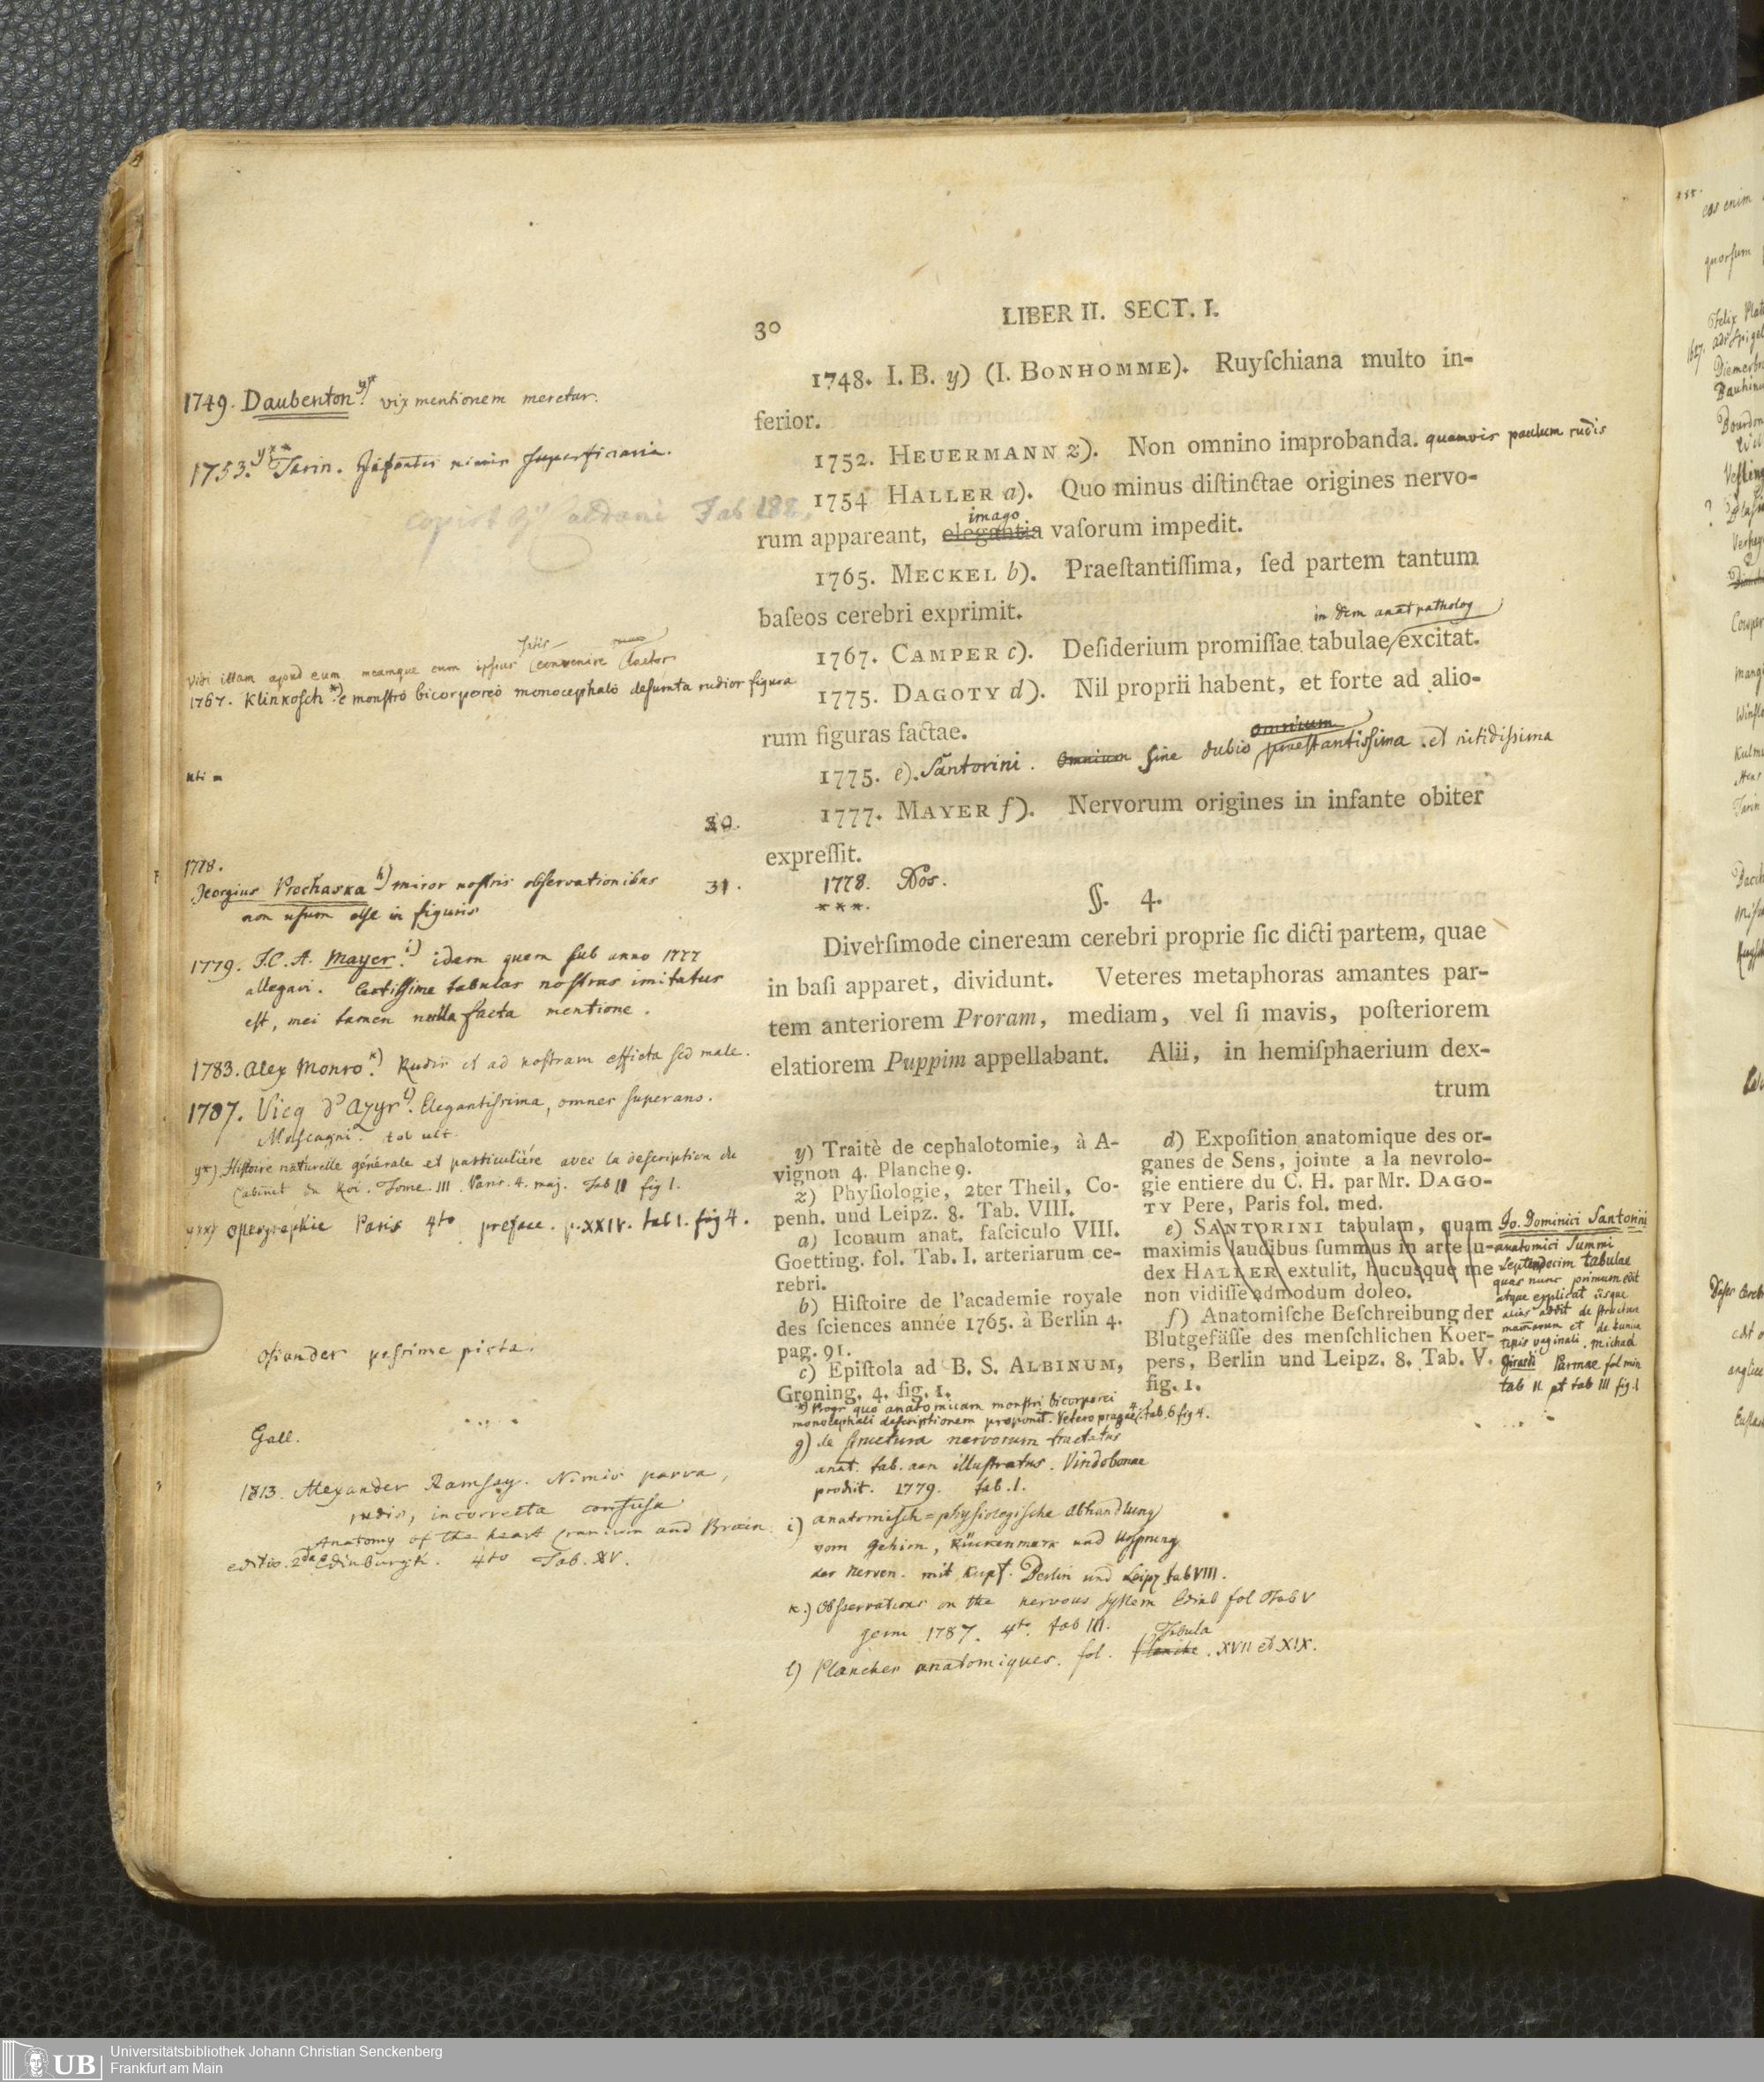 30
LIBER II. SECT. I.
1748. I. B. y) (I. BONHOMME). Ruyſchiana multo in-
ferior.
1752. HEUERMANN z). Non omnino improbanda. quamvis paulum rudis
1754 HALLER a). Quo minus diſtinctae origines nervo-
imago
rum appareant, elegantia vaſorum impedit.
1765. MECKEL b). Praeſtantiſſima, ſed partem tantum
baſeos cerebri exprimit.
in dem anat patholog
1767. CAMPER c). Deſiderium promiſſae tabulae excitat.
1775. DAGOTY d). Nil proprii habent, et forte ad alio-
rum figuras factae.
omnium
1775. e). Santorini. Omnium ſine dubio praeſtantiſſima. et nitidiſsima
1777. MAYER f). Nervorum origines in infante obiter
expreſſit.
1778. Nos.
***.
§. 4.
Diverſimode cineream cerebri proprie ſic dicti partem, quae
in baſi apparet, dividunt. Veteres metaphoras amantes par-
tem anteriorem Proram, mediam, vel ſi mavis, poſteriorem
elatiorem Puppim appellabant. Alii, in hemiſphaerium dex-
trum
y) Traitè de cephalotomie, à A-
vignon 4. Planche 9.
z) Phyſiologie, 2ter Theil, Co-
penh. und Leipz. 8. Tab. VIII.
a) Iconum anat. faſciculo VIII.
Goetting. fol. Tab. I. arteriarum ce-
rebri.
b) Hiſtoire de l'academie royale
des ſciences année 1765. à Berlin 4.
pag. 91.
c) Epiſtola ad B. S. ALBINUM,
Groning. 4. fig. 1.
*) Progr quo anatomicam monſtri bicorporei
monocephali deſcriptionem proponit. Vetero pragae 4. tab. 6 fig 4.
g) de ſtructura nervorum tractatus
anat. tab. aen illuſtratus. Vindobonae
prodiit. 1779. tab. I.
i) anatomiſch=phyſiologiſche Abhandlung
vom Gehirn, Rückenmark und Urſprung
der Nerven. mit Kupf. Berlin und Leipz tab VIII.
k.) Obſservations on the nervous ſyſtem Edinb fol Tab V
germ 1787. 4to. tab III.
Tabula
l) Planches anatomiques. fol. Planche. XVII et XIX.
d) Expoſition anatomique des or-
ganes de Sens, jointe a la nevrolo-
gie entiere du C. H. par Mr. DAGO-
TY Pere, Paris fol. med.
e) SANTORINI tabulam, quam
maximis laudibus ſummus in arte iu-
dex HALLER extulit, hucusque me
non vidiſſe admodum doleo.
f) Anatomiſche Beſchreibung der
Blutgefäſſe des menſchlichen Koer-
pers, Berlin und Leipz. 8. Tab. V.
fig. 1.
Jo. Dominici Santorini
anatomici Summi
Septendecim tabulae
quas nunc primum edit
atque explicat iisque
alias addit de ſtructura
mammarum et de tunica
teſtis vaginali. Michael
Girardi Parmae fol min
tab II et tab III fig. 1
1749. Daubenton y*. vix mentionem meretur.
1753. y** Tarin. nimis ſuperficiaria.
Tab 182.
Vidi illam apud eum meamque cum ipſius convenire
1767. Klinkoſch *) e monſtro bicorporeo monocephalo deſumta rudior figura
uti
30.
1778.
Georgius Prochaska h) miror noſtris obſervationibus
non uſum eſſe in figuris
31.
1779. J.C.A. Mayer. i) idem quem ſub anno 1777
allegavi. Certiſſime tabulas noſtras imitatus
eſt, mei tamen nulla facta mentione.
1783. Alex Monro. k) Rudis et ad noſtram efficta ſed male.
1787. Vicq d'Azyr l). Elegantiſsima, omnes ſuperans.
Maſcagni tab ult.
y*) Hiſtoire naturelle générale et particuliére avec la deſcription du
Cabinet du Roi. Tome. III. Paris. 4. maj. Tab II fig 1.
y**) Paris 4to preface. p. XXIV. tab I. fig 4.
Oſiander peſsime picta.
Gall.
1813. Alexander Ramſay. Nimis parva,
rudis, incorrecta confuſa
Anatomy of the heart Cranium and Brain
editio. 2da Edinburgh. 4to Tab. XV.
UB
Universitätsbibliothek Johann Christian Senckenberg
Frankfurt am Main